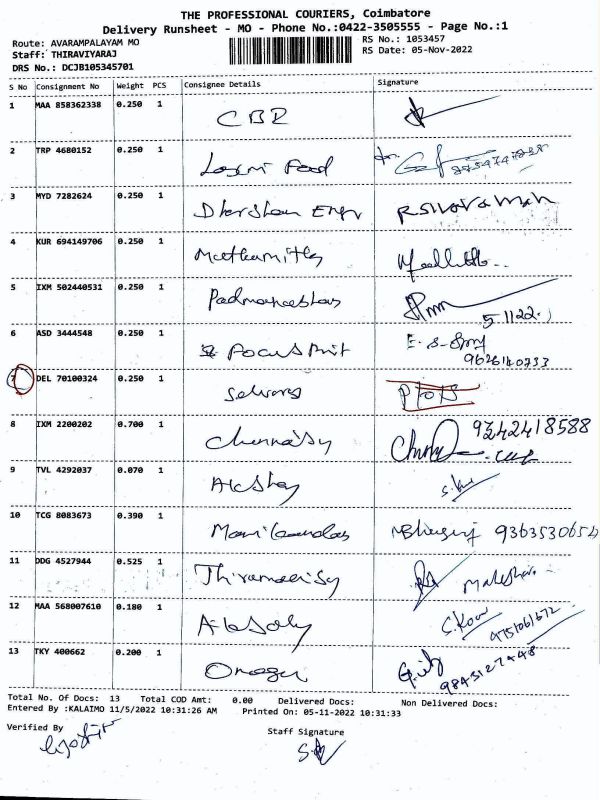 THE PROFESSIONAL COURIERS, Coimbatore
Delivery Runsheet - MO - Phone No.:0422-3505555 - Page No.:1
Route: AVARAMPALAYAM MO
RS No.: 1053457
Staff: THIRAVIYARAJ
RS Date: 05-Nov-2022
DRS No.: DCJB105345701
S No Consignment No Weight PCS Consignee Details Signature
1 MAA 858362338 0.250 1 CBR
2 TRP 4680152 0.250 1 Laxmi Food
3 MYD 7282624 0.250 1 Dharshan Engr
4 KUR 694149706 0.250 1
5 IXM 502440531 0.250 1 5-1122
6 ASD 3444548 0.250 1 Focus Print 9626140733
7 DEL 70100324 0.250 1 Selvaraj
8 IXM 2200202 0.700 1 9242418588
9 TVL 4292037 0.070 1 Akshay
10 TCG 8083673 0.390 1
11 DDG 4527944 0.525 1
12 MAA 568007610 0.180 1 9751061672
13 TKY 400662 0.200 1 Omega 9843127448
Total No. Of Docs: 13 Total COD Amt: 0.00 Delivered Docs: Non Delivered Docs:
Entered By :KALAIMO 11/5/2022 10:31:26 AM Printed On: 05-11-2022 10:31:33
Verified By
Staff Signature